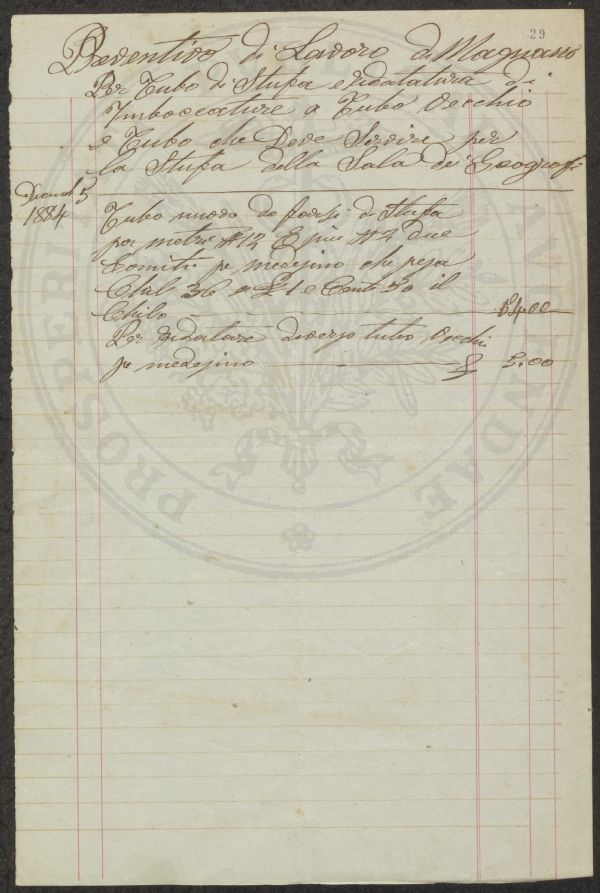 29
Preventivo di Lavoro di Magnasso
Per Tubo di Stufa e ridatatura di
Imboccature a Tubo Vecchio
e Tubo che Deve Servire per
la Stufa della Sala dei Geografi
Dicemb 3
1884
Tubo nuovo da di Stufa
per metri # 12 E piu # 2 due
Gomiti pe medesimo che pesa
Chil 36 a £ 1 e Cent 50 il
Chilo 54.00
Per diverso tubo Vecchi
pe medesimo £ 5.00
PROSPERI AVGVNDAE